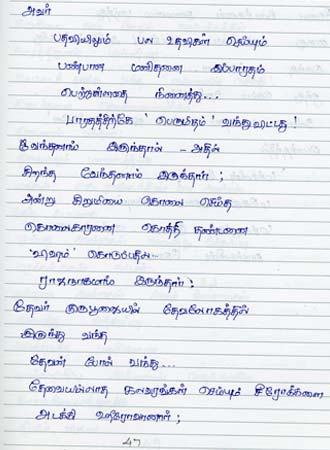 அவர்
பதவியிலும் பல உதவிகள் செய்யும்
பண்பான மனிதனை இப்பாரதம்
பெற்றுள்ளதை நினைத்து...
பாரதத்திற்கே 'பெருமிதம்' வந்துவிட்டது!
இருந்தாள் - அதில்
சிறந்த வேந்தனாய் இருக்கார்;
அன்று சிறுமியை கொலை செய்த
கொலைகாரனை கொத்தி தண்டனை
கொடுப்பதில்
ராஜநாகமாய் இருந்தார்!
தேவர் குருபூஜையில் தேவலோகத்தில்
இருந்து வந்த
தேவன் போல் வந்து...
தேவையில்லாத கலவரங்கள் செய்யும்
அடக்கி ஹீரோவானார்;
47